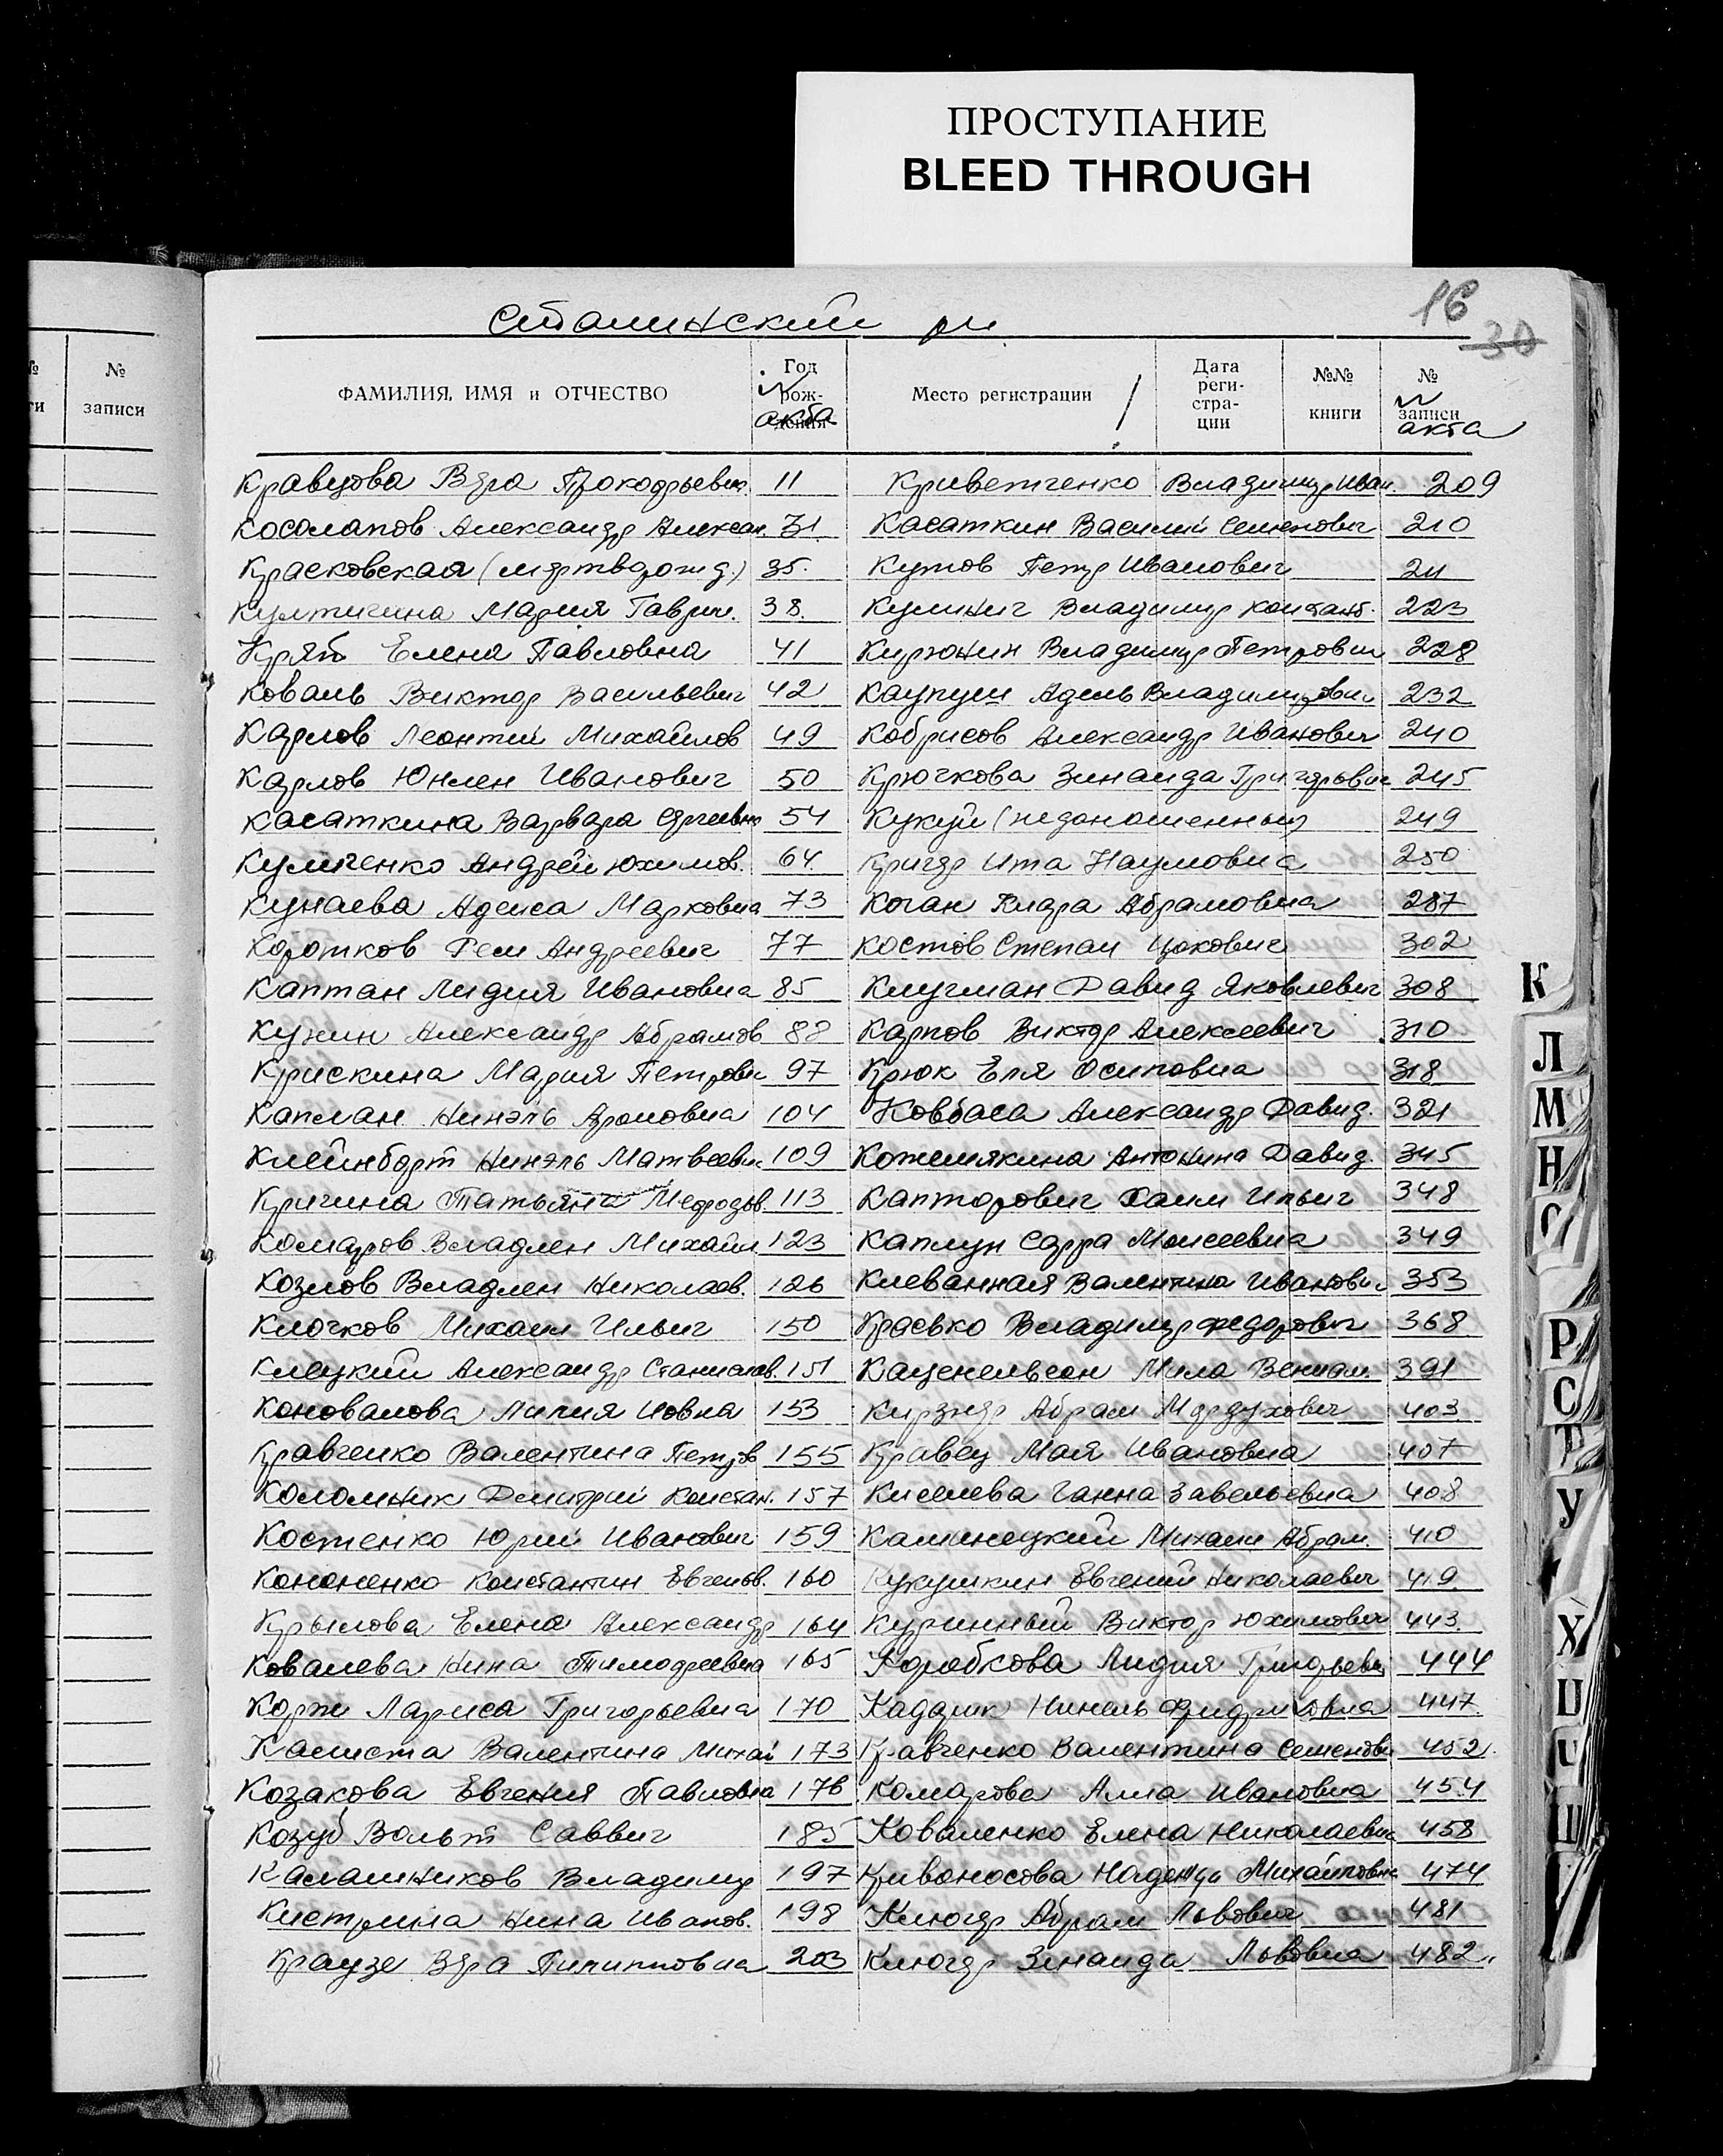 ПРОСТУПАНИЕ
BLEED THROUGH
16
30
Сталинский рн
№ записи
ФАМИЛИЯ, ИМЯ и ОТЧЕСТВО
Год рождения
№ акта
Место регистрации
Дата регистрации
№№ книги
№ записи
№ акта
Кравцова Вера Прокофьевн. 11 Криветченко Владимир Иван. 209
Косолапов Александр Алексан. 31. Касаткин Василий Семенович 210
Красковская (мертворожд.) 35. Кутов Петр Иванович 211
Мария Гаврил. 38. Кулинич Владимир Констант. 223
Крят Елена Павловна 41 Кирюнин Владимир Петрович 228
Коваль Виктор Васильевич 42 Адель Владимирович 232
Карлов Леонтий Михайлов 49 Кобрисов Александр Иванович 240
Карлов Юнлен Иванович 50 Крючкова Зинаида Григорьевн 245
Касаткина Варвара Сергеевна 54 Кукуй (недоношенный) 249
Куличенко Андрей Юхимов. 64. Кригер Ита Наумовна 250
Кунаева Адеиса Марковна 73 Коган Клара Абрамовна 287
Коротков Рем Андреевич 77 Костов Степан Цокович 302
Каптан Лидия Ивановна 85 Клугман Давид Яковлевич 308
Кунин Александр Абрамов 88 Карпов Виктор Алексеевич 310
Крискина Мария Петровн 97 Крюк Еля Осиповна 318
Каплан Нинэль Ароновна 104 Ковбаса Александр Давид. 321
Клейнборт Нинэль Матвеевн. 109 Кожемякина Антонина Давид. 345
Кричина Татьяна Мефодов. 113 Канторович Хаим Ильич 348
Комаров Владлен Михайл 123 Каплун Сарра Моисеевна 349
Козлов Владлен Николаев. 126 Клеванная Валентина Ивановн. 353
Клочков Михаил Ильич 150 Красько Владимир Федорович 368
Клецкий Александр Станислав. 151 Каценельсон Мила Вениам. 391
Коновалова Лилия Иовна 153 Кирзнер Абрам Мордухович 403
Кравченко Валентина Петров 155 Кравец Мая Ивановна 407
Коломник Дмитрий Констан. 157 Киселева Ганна Савельевна 408
Костенко Юрий Иванович 159 Каминецкий Михаил Абрам. 410
Кононенко Константин Евгенов. 160 Кукушкин Евгений Николаевич 419
Крылова Елена Александр 164 Куринный Виктор Юхимович 443.
Ковалева Нина Тимофеевна 165 Коробкова Лидия Григорьевн 444
Корж Лариса Григорьевна 170 Каддик Нинель Фридриховна 447
Калиста Валентина Михай 173 Кравченко Валентина Семеновн 452.
Козакова Евгения Павловна 176 Комарова Алла Ивановна 454
Козуб Вольт Саввич 185 Коваленко Елена Николаевна 458
Калашников Владимир 197 Кривоносова Надежда Михайловна 474
Нина Иванов. 198 Клюгер Абрам Львович 481
Краузе Вера Пилипповна 203 Клюгер Зинаида Львовна 482.
К
Л
М
Н
О
Р
С
Т
У
Х
Ц
Ш